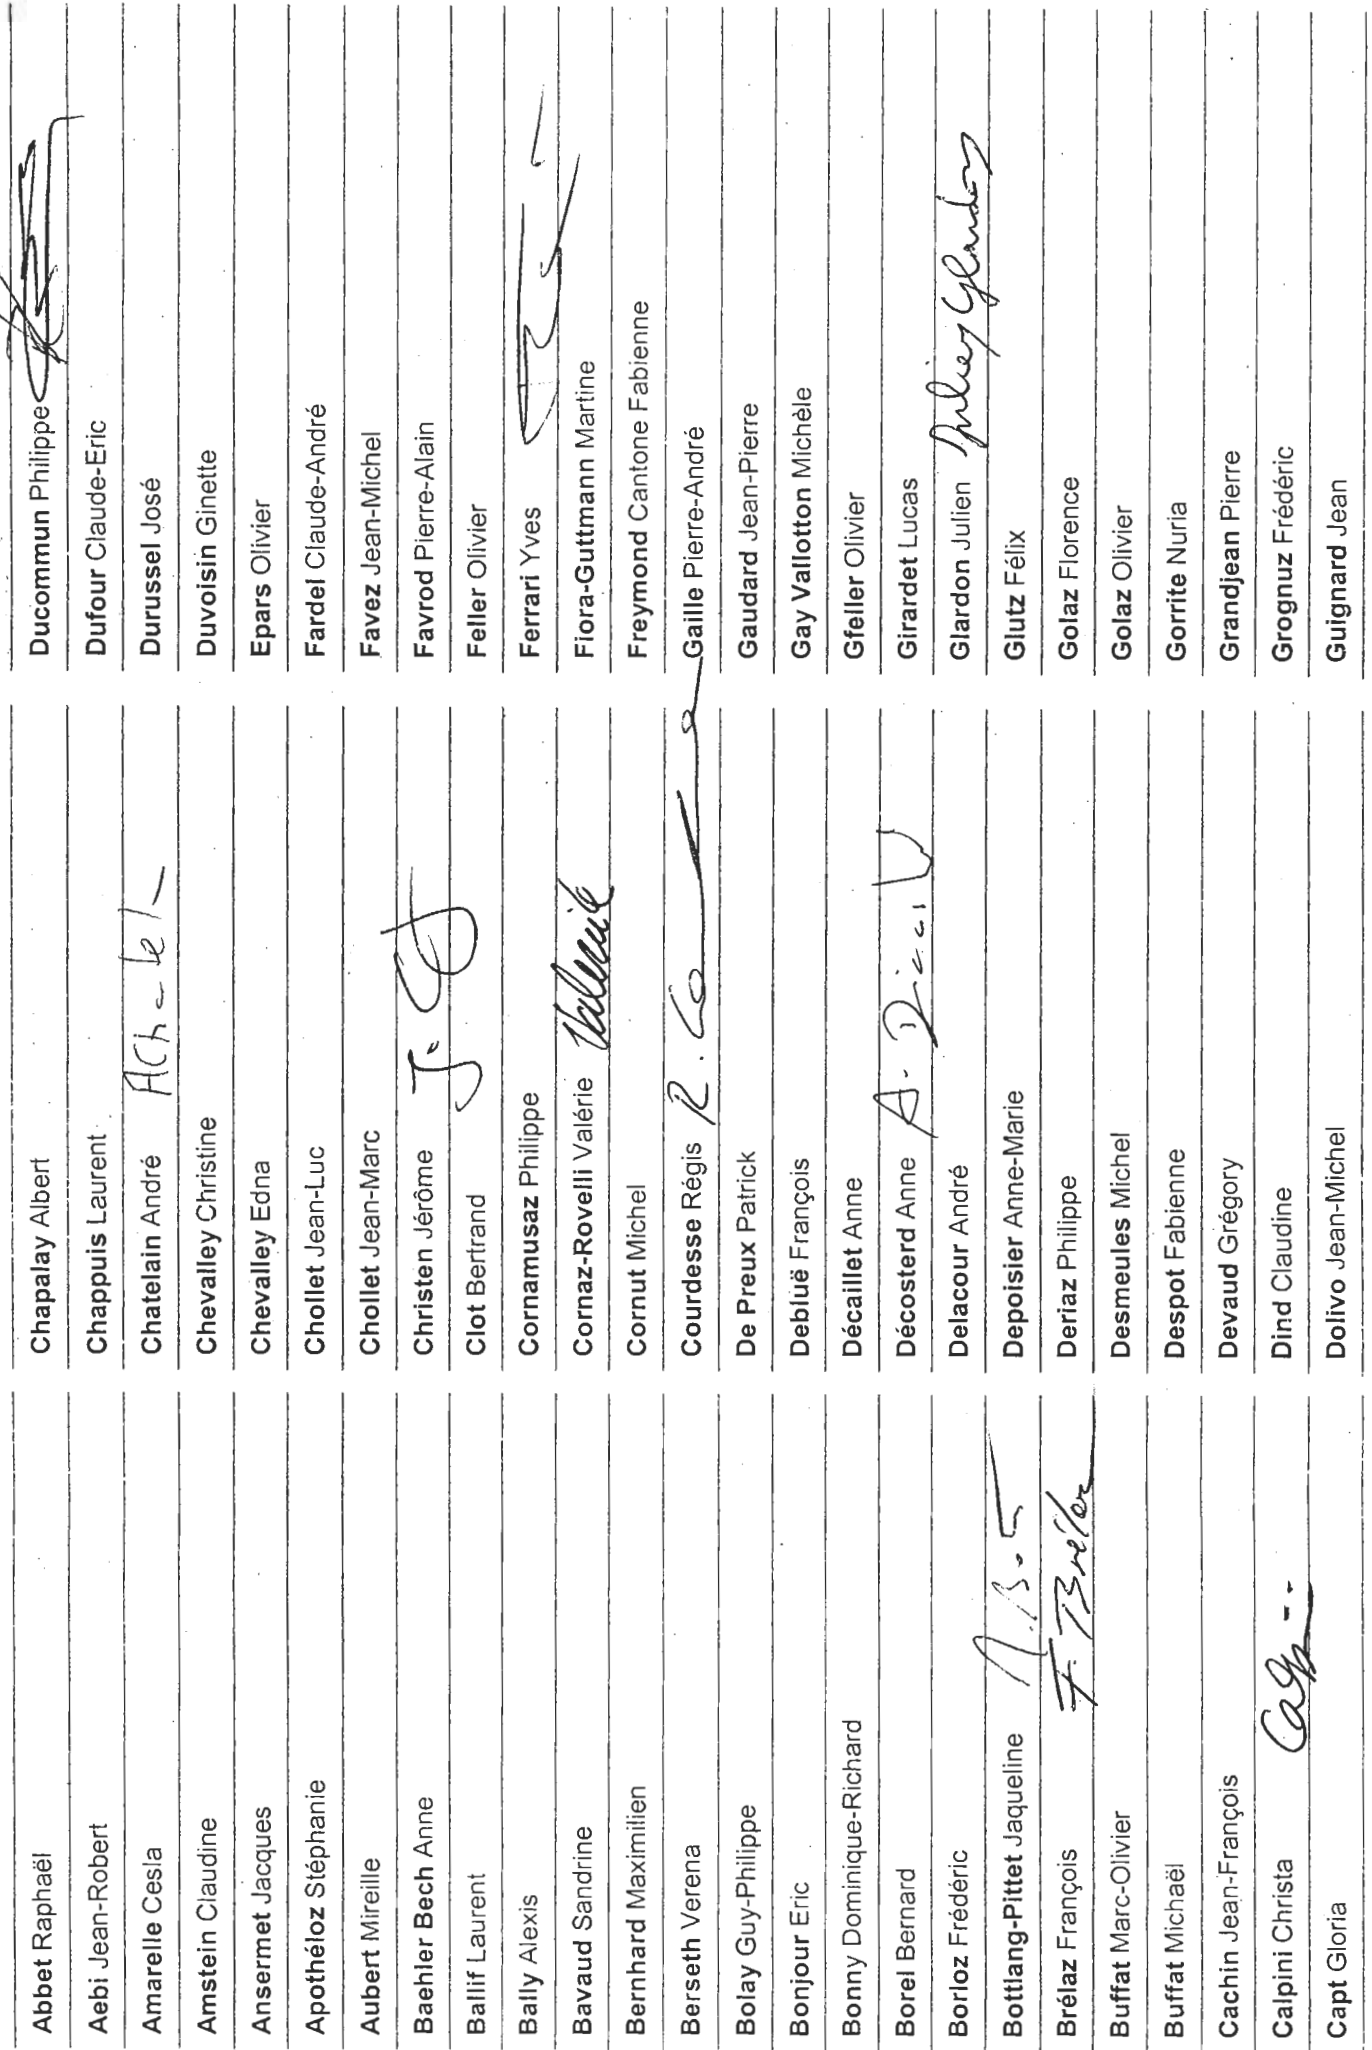 Abbet Raphaël
Aebi Jean-Robert
Amarelle Cesla
Amstein Claudine
Ansermet Jacques
Apothéloz Stéphanie
Aubert Mireille
Baehler Bech Anne
Ballif Laurent
Bally Alexis
Bavaud Sandrine
Bernhard Maximilien
Berseth Verena
Bolay Guy-Philippe
Bonjour Eric
Bonny Dominique-Richard
Borel Bernard
Borloz Frédéric
Bottlang-Pittet Jaqueline
Brélaz François F. Brélaz
Buffat Marc-Olivier
Buffat Michaël
Cachin Jean-François
Calpini Christa
Capt Gloria
Chapalay Albert
Chappuis Laurent
Chatelain André
Chevalley Christine
Chevalley Edna
Chollet Jean-Luc
Chollet Jean-Marc
Christen Jérôme
Clot Bertrand
Cornamusaz Philippe
Cornaz-Rovelli Valérie
Cornut Michel
Courdesse Régis
De Preux Patrick
Debluë François
Décaillet Anne
Décosterd Anne
Delacour André
Depoisier Anne-Marie
Deriaz Philippe
Desmeules Michel
Despot Fabienne
Devaud Grégory
Dind Claudine
Dolivo Jean-Michel
Ducommun Philippe
Dufour Claude-Eric
Durussel José
Duvoisin Ginette
Epars Olivier
Fardel Claude-André
Favez Jean-Michel
Favrod Pierre-Alain
Feller Olivier
Ferrari Yves
Fiora-Guttmann Martine
Freymond Cantone Fabienne
Gaille Pierre-André
Gaudard Jean-Pierre
Gay Vallotton Michèle
Gfeller Olivier
Girardet Lucas
Glardon Julien Julien Glardon
Glutz Félix
Golaz Florence
Golaz Olivier
Gorrite Nuria
Grandjean Pierre
Grognuz Frédéric
Guignard Jean